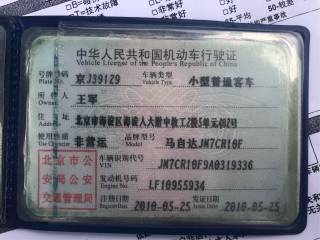 B=非常
T=技术故障
非常好
好
50-较差
中华人民共和国机动车行驶证
Vehicle License of the People's Republic of China
号牌号码 京J39129 车辆类型 小型普通客车
Plate No. Vehicle Type
所有人 王军
Owner
住址 北京市海淀区
Address
使用性质 非营运 品牌型号 马自达JM7CR10F
Use Character Model
北京市公安局公安交通管理局
车辆识别代号 JM7CR10F9A0319336
VIN
发动机号码 LF10955934
Engine No.
注册日期 2010-05-25 发证日期 2010-05-25
Register Date Issue Date